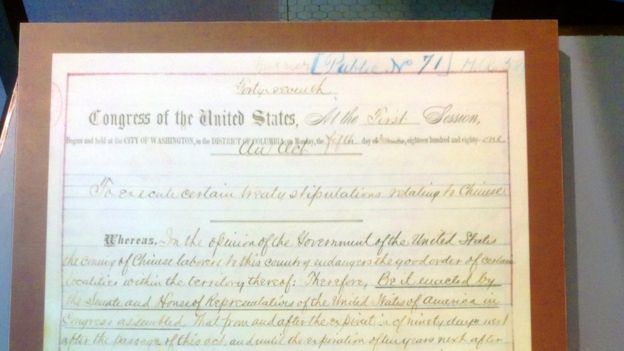 [Public No 71]
Forty-seventh
Congress of the United States, At the First Session,
Begun and held at the CITY OF WASHINGTON, in the DISTRICT OF COLUMBIA, on Monday, the fifth day of December, eighteen hundred and eighty-one
An Act
To execute certain treaty stipulations relating to Chinese.
Whereas, In the opinion of the Government of the United States
the coming of Chinese laborers to this country endangers the good order of certain
localities within the territory thereof: Therefore, Be it enacted by
the Senate and House of Representatives of the United States of America in
Congress assembled, That from and after the expiration of ninety days next
after the passage of this act, and until the expiration of ten years next after